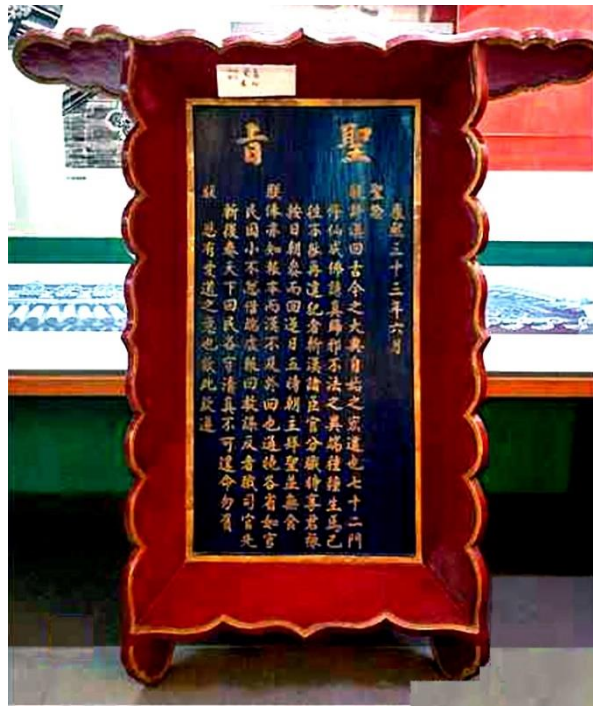 聖旨
康熙三十三年六月
聖諭
朕評漢回古今之大典自始之宏道也七十二門
修仙成佛誘真歸邪不法之異端種種生焉已
往不咎再違犯者斬漢諸臣官分職時享君祿
按日朝參而回逐日五時朝主拜聖並無食
朕俸亦知報本而漢不及於回也通曉各省如官
民因小不忿借端虛報回教謀反者職司官先
斬後奏天下回民各守清真不可違命勿負
朕恩有愛道之意也欽此欽遵